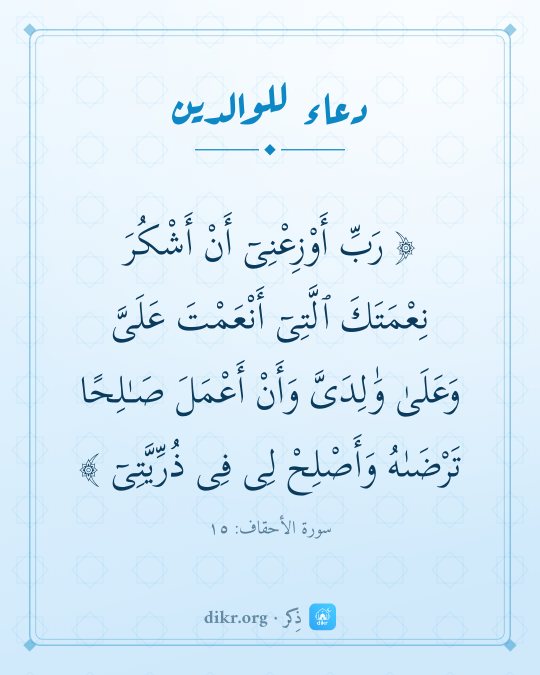 دعاء للوالدين
﴿ رَبِّ أَوْزِعْنِىٓ أَنْ أَشْكُرَ
نِعْمَتَكَ ٱلَّتِىٓ أَنْعَمْتَ عَلَىَّ
وَعَلَىٰ وَٰلِدَىَّ وَأَنْ أَعْمَلَ صَـٰلِحًا
تَرْضَىٰهُ وَأَصْلِحْ لِى فِى ذُرِّيَّتِىٓ ﴾
سورة الأحقاف: ١٥
ذِكر · dikr.org
dikr